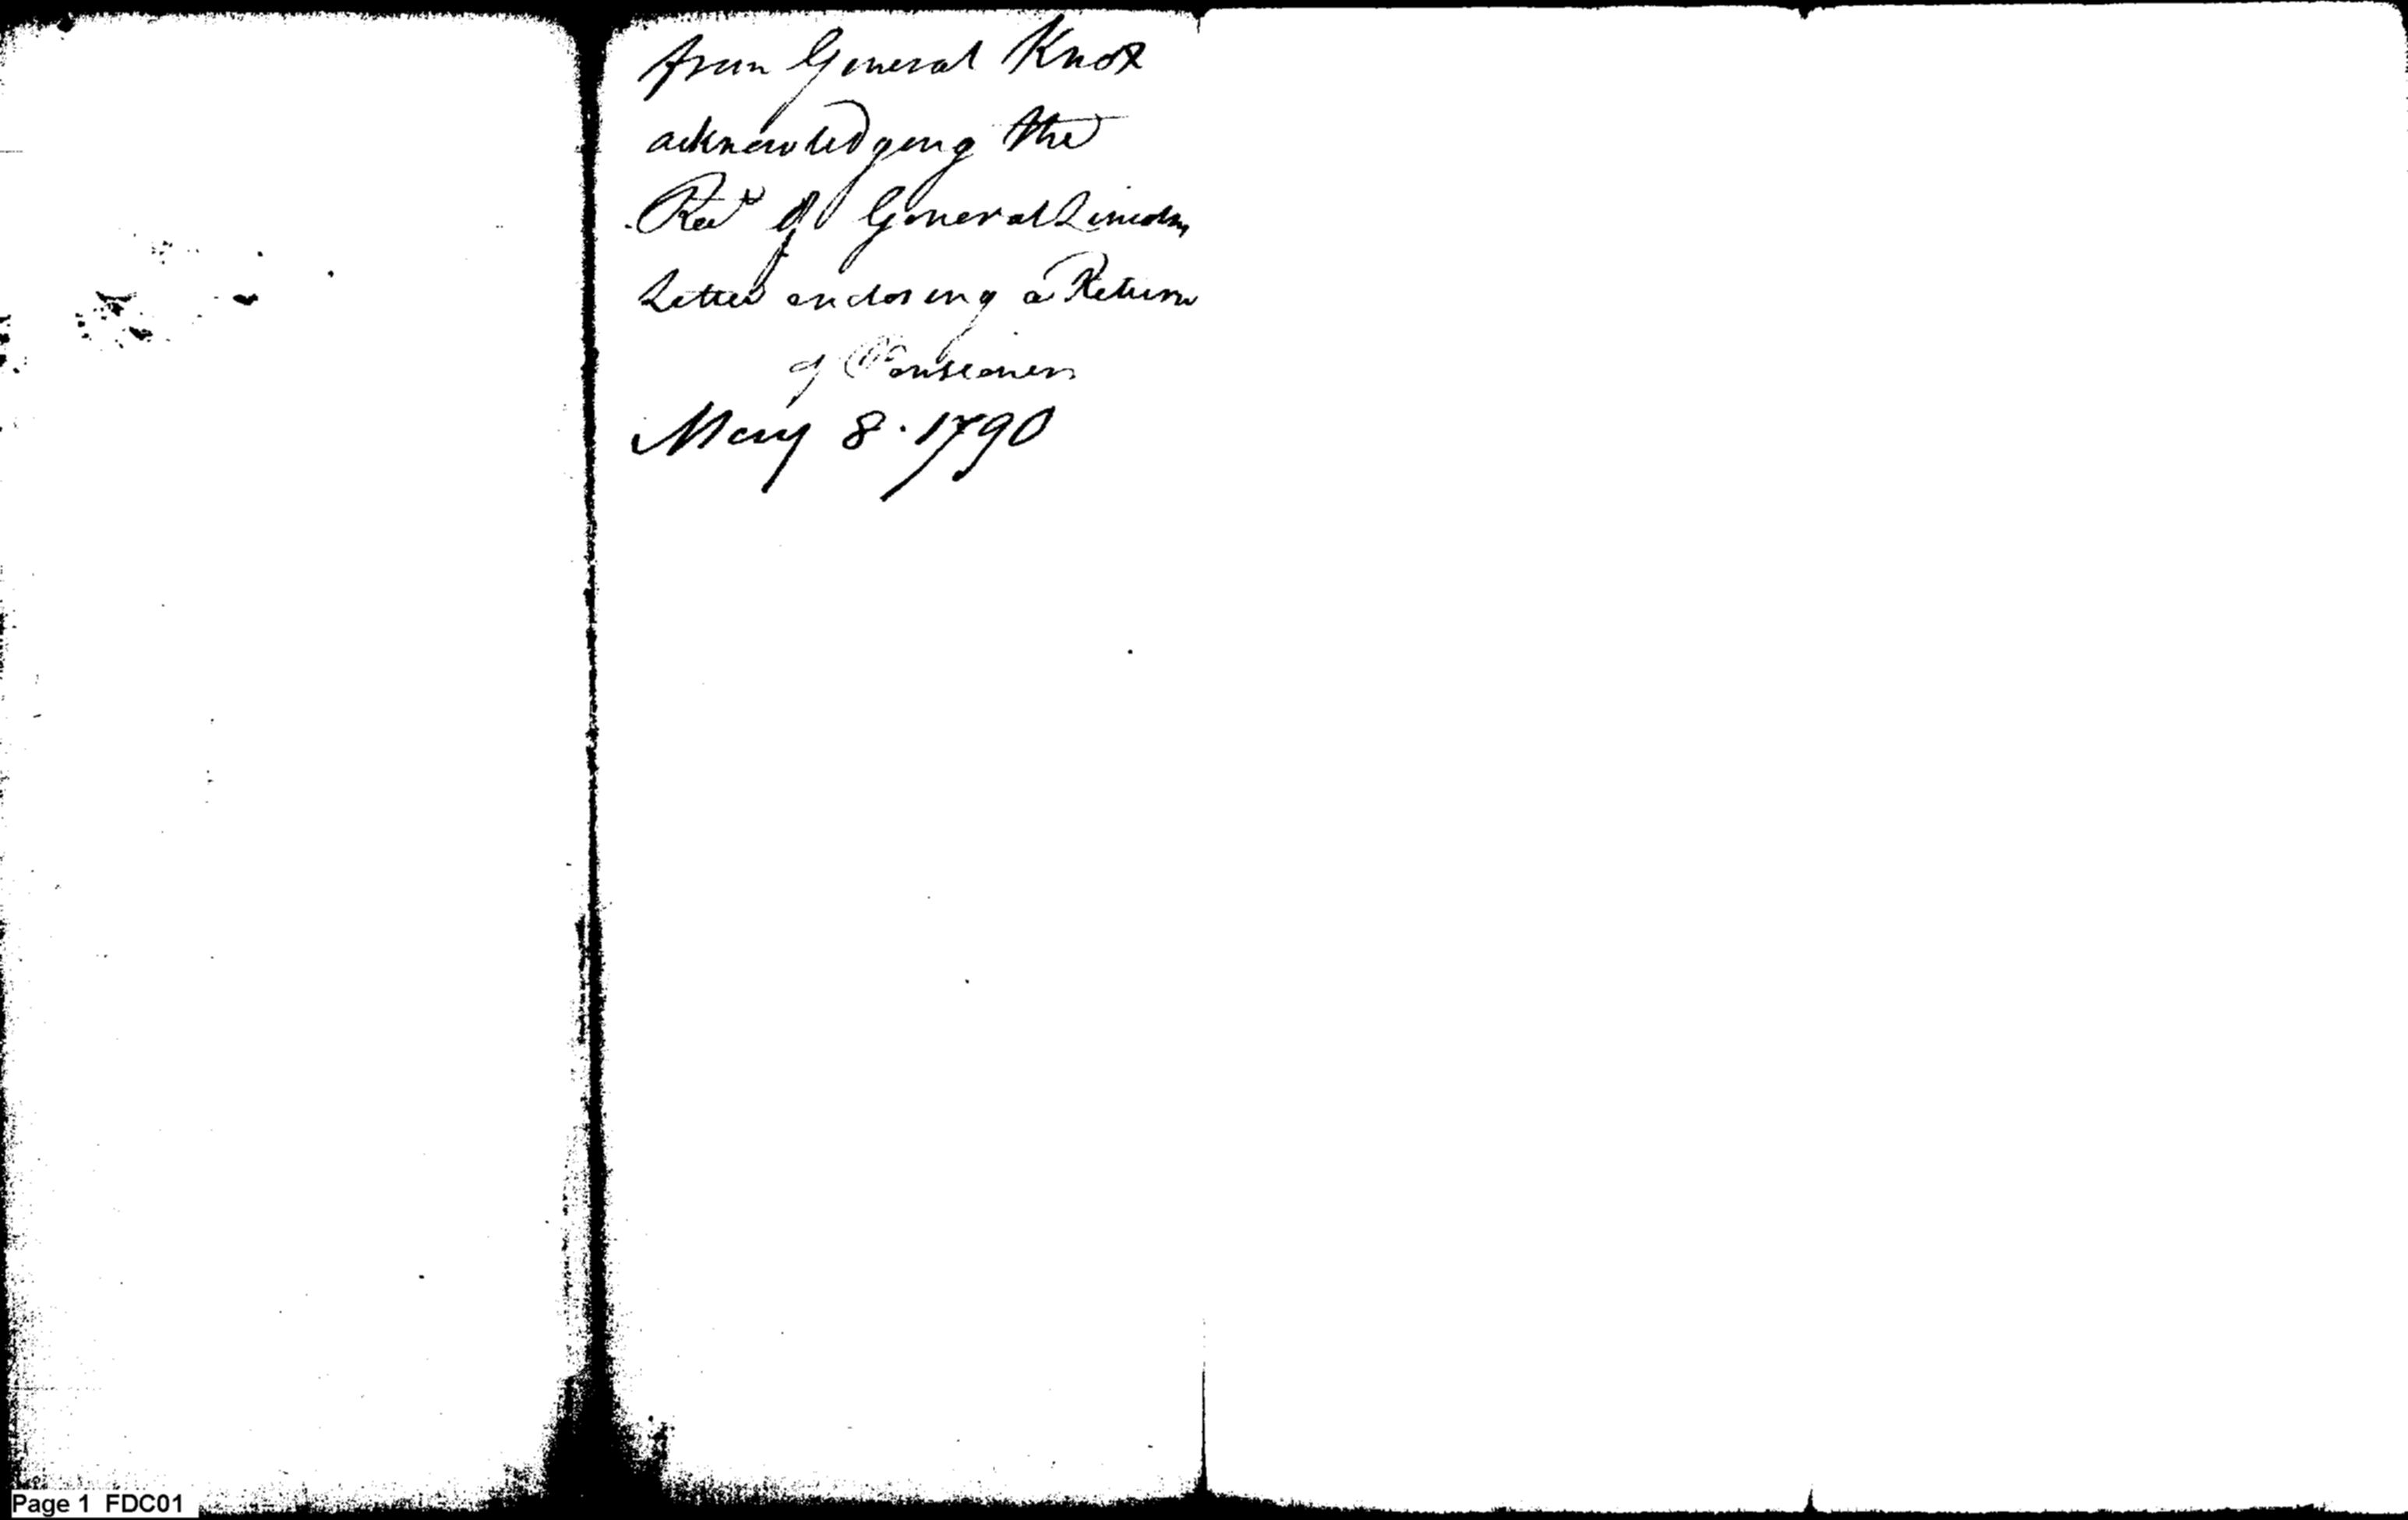 from General Knox
acknowledging the
Rect of General Lincoln
Letter enclosing a Return
of Pensioners
May 8. 1790
Page 1 FDC01